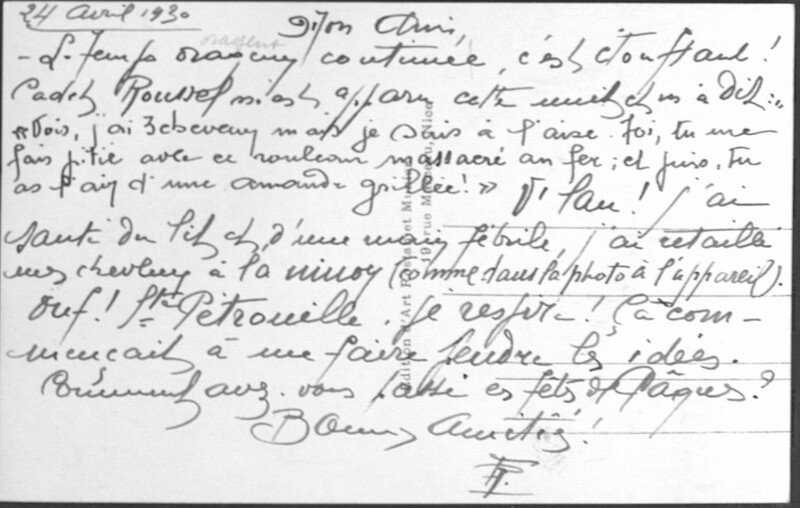 24 Avril 1930
Mon Ami,
orageux
- Le temps orageux continue, c'est étouffant !
Cadet Roussel m'est apparu cette nuit et m'a dit : "
« Vois, j'ai 3 cheveux mais je suis à l'aise. Toi, tu me
fais pitié avec ce rouleau massacré au fer ; et puis, tu
as l'air d'une amande grillée ! » V'lan ! J'ai
sauté du lit et, d'une main fébrile, j'ai retaillé
mes cheveux à la ninon (comme dans la photo à l'appareil).
Ouf ! Ste Pétrouille, je respire ! Ça com-
mençait à me faire fendre les idées.
Comment avez-vous passé ces fêtes de Pâques ?
Bonnes Amitiés !
Edition d'Art
rue
Nice